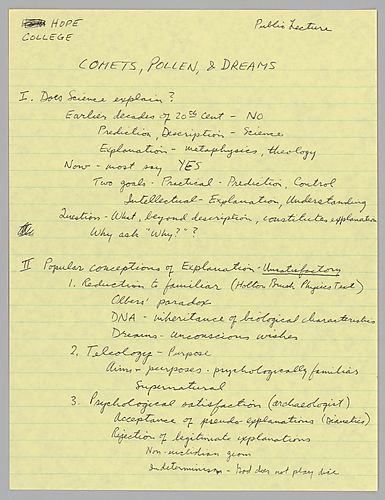 HOPE
Public Lecture
COLLEGE
COMETS, POLLEN, & DREAMS
I. Does Science explain?
Earlier decades of 20th Cent - NO
Prediction, Description - Science
Explanation - metaphysics, theology
Now - most say YES
Two goals - Practical - Prediction, Control
Intellectual - Explanation, Understanding
Question - What, beyond description, constitutes explanation
Why ask "Why?"?
II Popular conceptions of Explanation - Unsatisfactory
1. Reduction to familiar (Holton Brush, Physics Text)
Olbers' paradox
DNA - inheritance of biological characteristics
Dreams - unconscious wishes
2. Teleology - Purpose
Aims & purposes - psychologically familiar
Supernatural
3. Psychological satisfaction (archaeologist)
Acceptance of pseudo-explanations (Dianetics)
Rejection of legitimate explanations
Non-euclidean geom
Indeterminism - God does not play dice